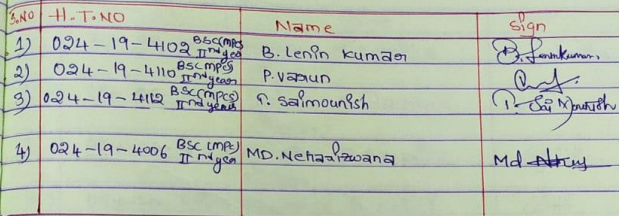 S.NO H.T.NO Name Sign
1) 024-19-4102 BSC(MPCs) IInd year B. Lenin Kumar B. Leninkumar.
2) 024-19-4110 BSC(MPCs) IInd year P. Varun
3) 024-19-4112 BSC(MPCs) IInd year T. Saimounish T. Sai Mounish
4) 024-19-4006 BSC(MPC) IInd year MD. Neharizwana Md